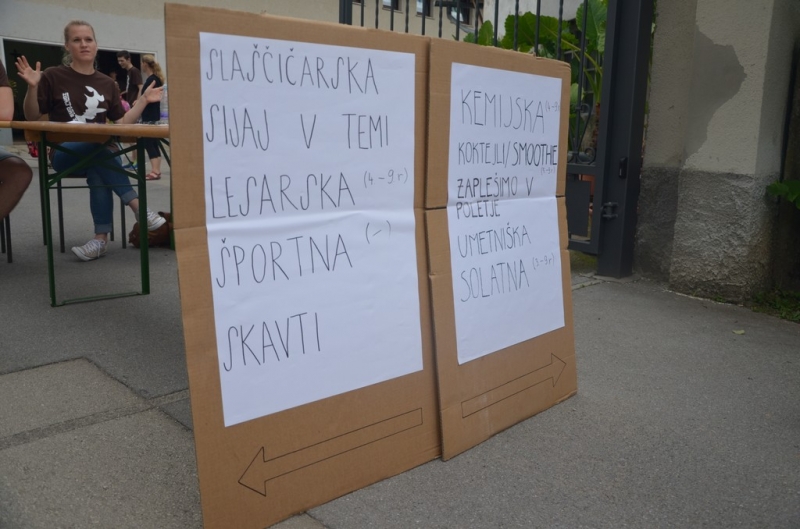 SLAŠČIČARSKA
SIJAJ V TEMI
LESARSKA (4-9r)
ŠPORTNA (-)
SKAVTI
KEMIJSKA
KOKTEJLI/SMOOTHE
ZAPLEŠIMO V
POLETJE
UMETNIŠKA
SOLATNA